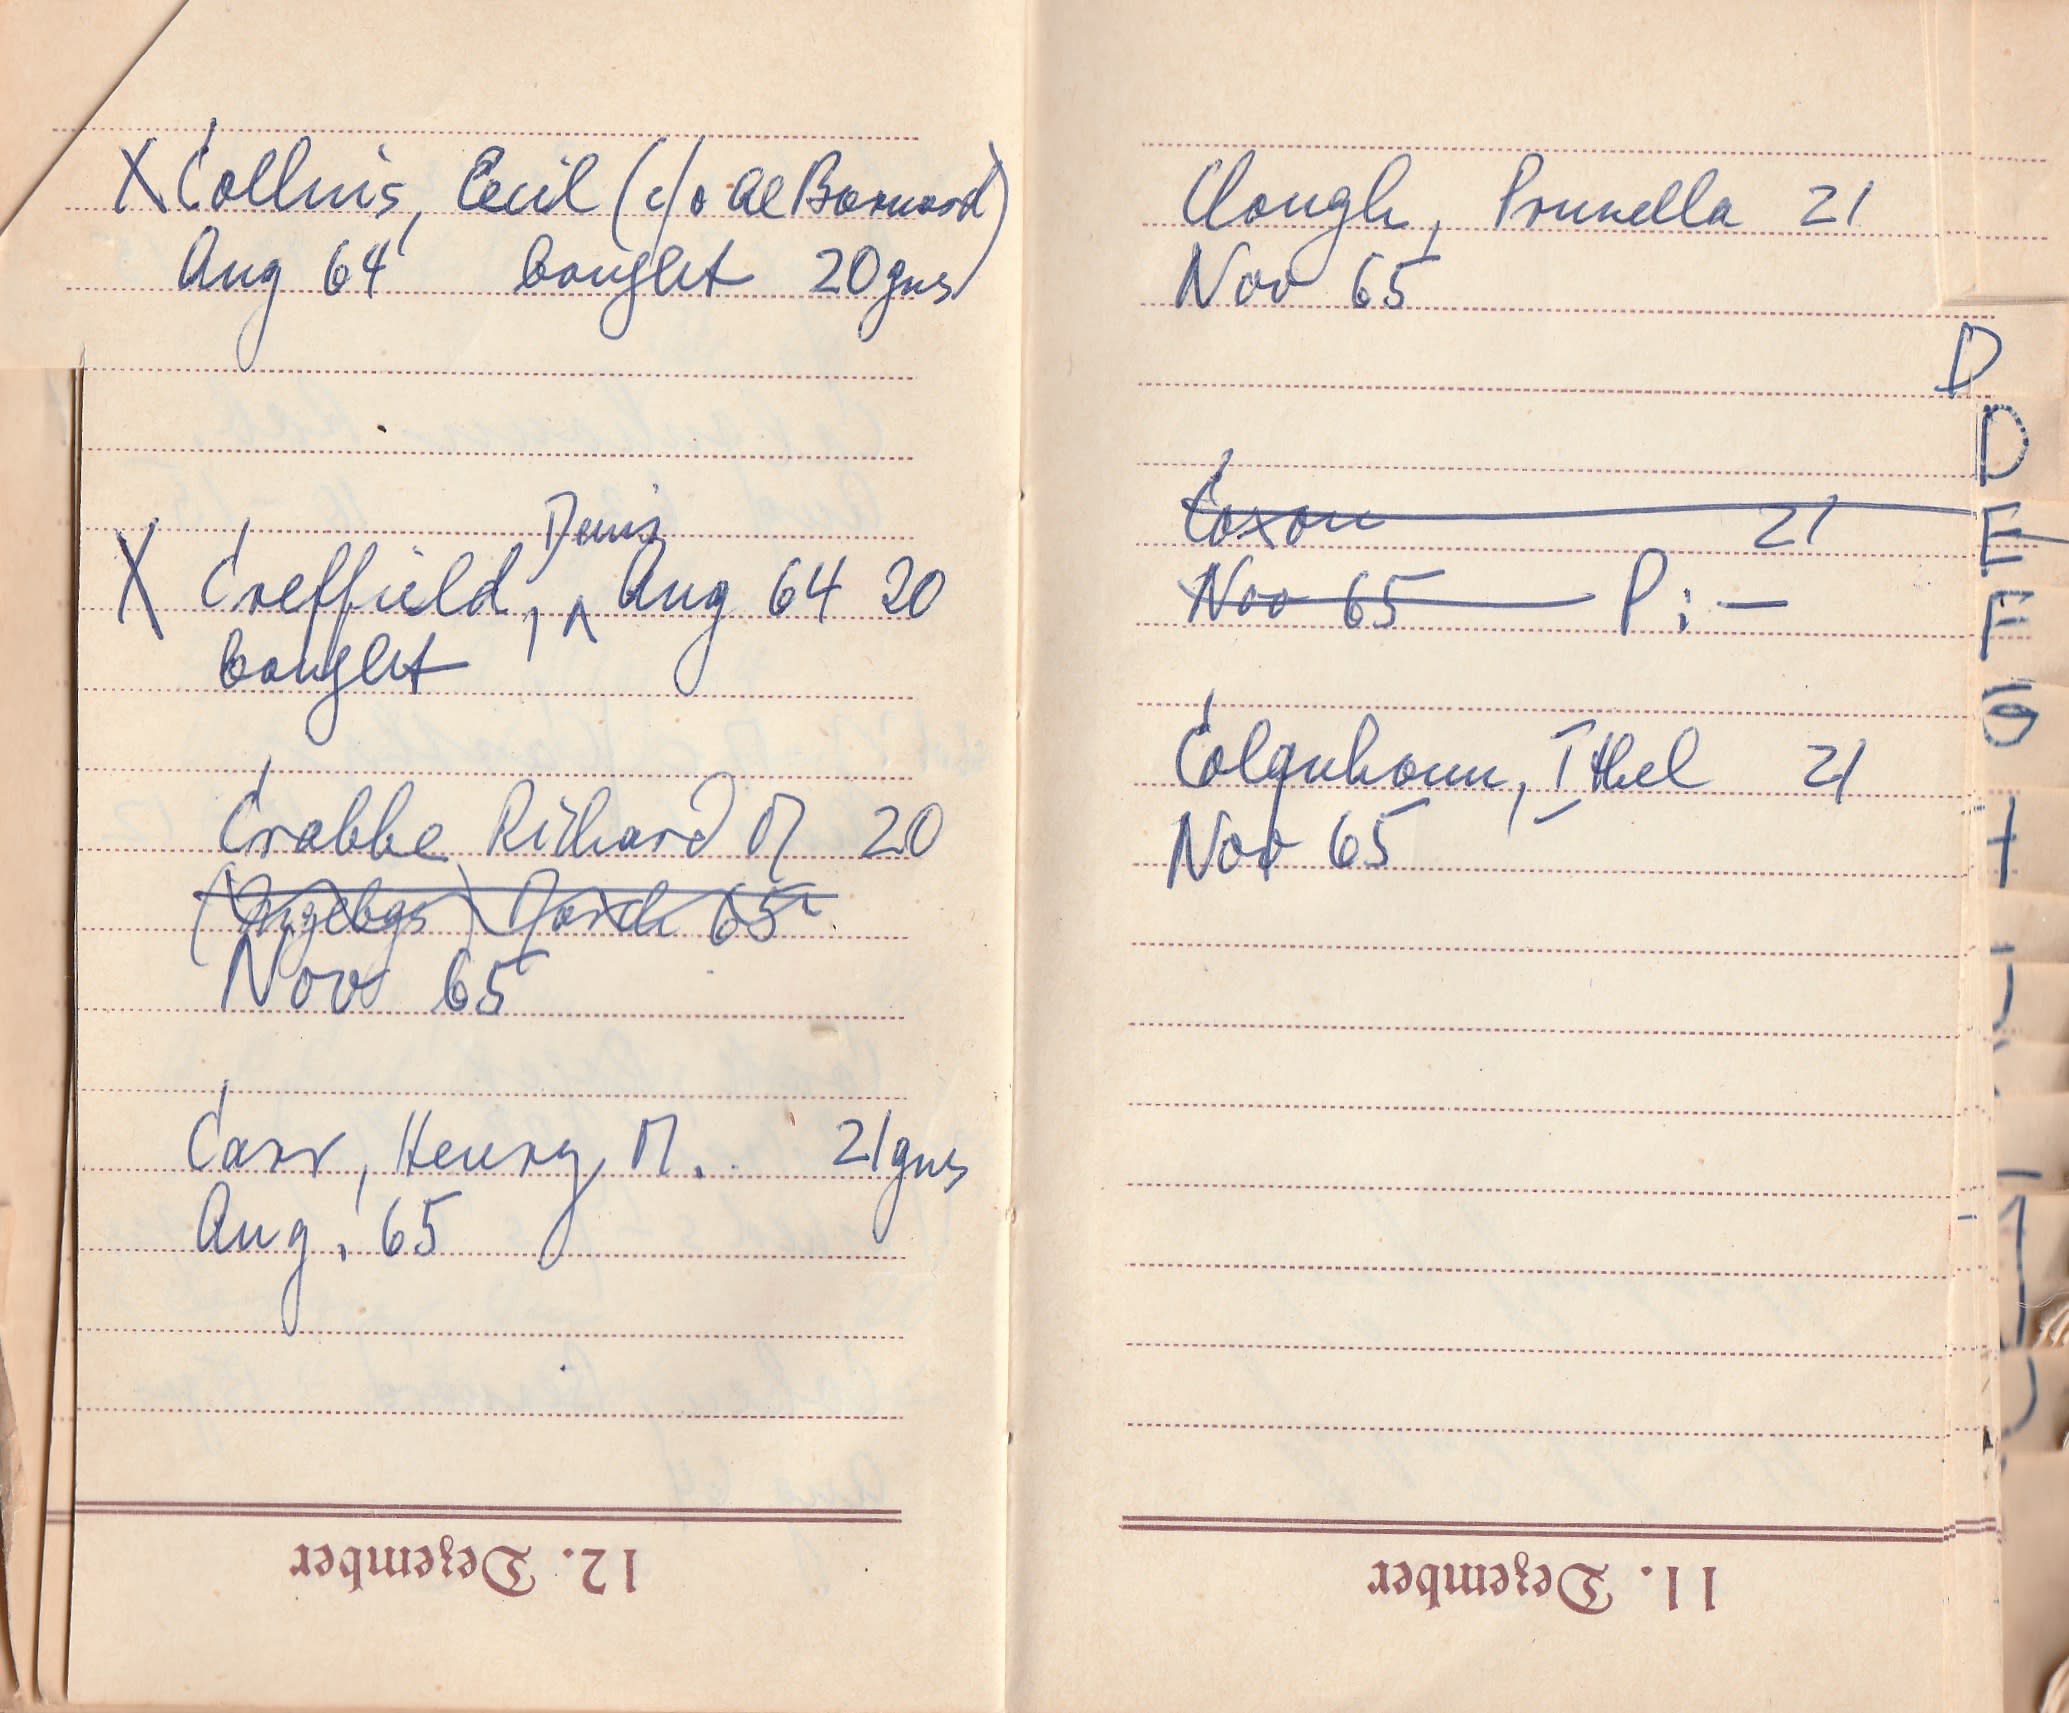 X Collins, Cecil (c/o Al Barnard)
Aug 64 bought 20gns
Denis
X Creffield, ^ Aug 64 20
bought
Crabbe, Richard M 20
March 65
Nov 65
Carr, Henry M. 21gns
Aug. 65
12. Dezember
Clough, Prunella 21
Nov 65
Coxon 21
Nov 65 P: —
Colquhoun, Ithel 21
Nov 65
11. Dezember
D
D
E
F
G